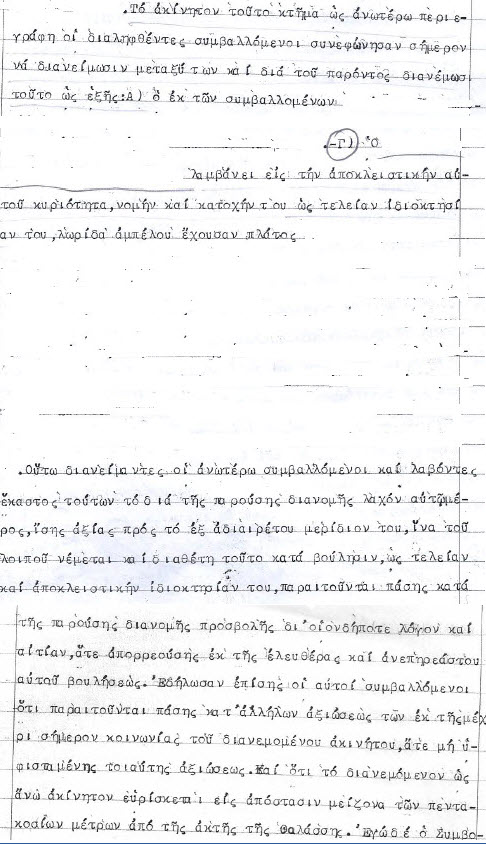 .Τό ἀκίνητον τοῦτο κτῆμα ὡς ἀνωτέρω περιε-
γράφη οἱ διαληφθέντες συμβαλλόμενοι συνεφώνησαν σήμερον
νά διανείμωσιν μεταξύ των καί διά τοῦ παρόντος διανέμωσι
τοῦτο ὡς ἑξῆς:Α) ὁ ἐκ τῶν συμβαλλομένων
-Γ) Ὁ
λαμβάνει εἰς τήν ἀποκλειστικήν αὐ-
τοῦ κυριότητα,νομήν καί κατοχήν του ὡς τελείαν ἰδιοκτησί
αν του,λωρίδα ἀμπέλου ἔχουσαν πλάτος
.Οὕτω διανείμαντες οἱ ἀνωτέρω συμβαλλόμενοι καί λαβόντες
ἕκαστος τούτων τό διά τῆς παρούσης διανομῆς λαχόν αὐτῷ μέ-
ρος,ἴσης ἀξίας πρός τό ἐξ ἀδιαιρέτου μερίδιον του,ἵνα τοῦ
λοιποῦ νέμεται καί διαθέτη τοῦτο κατά βούλησιν,ὡς τελείαν
καί ἀποκλειστικήν ἰδιοκτησίαν του,παραιτοῦνται πάσης κατά
τῆς παρούσης διανομῆς προσβολῆς δι'οἱονδήποτε λόγον καί
αἰτίαν,ἅτε ἀπορρεούσης ἐκ τῆς ἐλευθέρας καί ἀνεπηρεάστου
αὐτοῦ βουλήσεώς. Ἐδήλωσαν ἐπίσης οἱ αὐτοί συμβαλλόμενοι
ὅτι παραιτοῦνται πάσης κατ'ἀλλήλων ἀξιώσεως τῶν ἐκ τῆς μέχ
ρι σήμερον κοινωνίας τοῦ διανεμομένου ἀκινήτου,ἅτε μή ὑ-
φισταμένης τοιαύτης ἀξιώσεως.Καί ὅτι τό διανεμόμενον ὡς
ἄνω ἀκίνητον εὑρίσκεται εἰς ἀπόστασιν μείζονα τῶν πεντα-
κοσίων μέτρων ἀπό τῆς ἀκτῆς τῆς θαλάσσης. Ἐγώ δέ ὁ Συμβο-